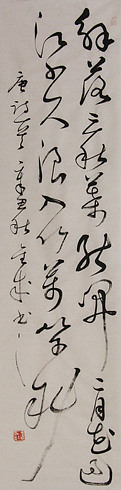 解落三秋葉能開二月花過
江千尺浪入竹萬竿斜
唐詩一首辛丑秋書